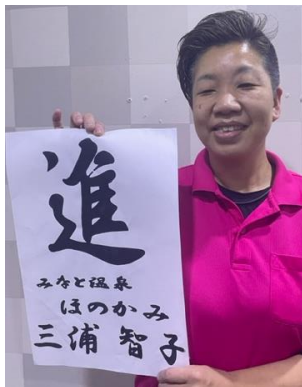 進
みなと温泉
ほのかみ
三浦 智子